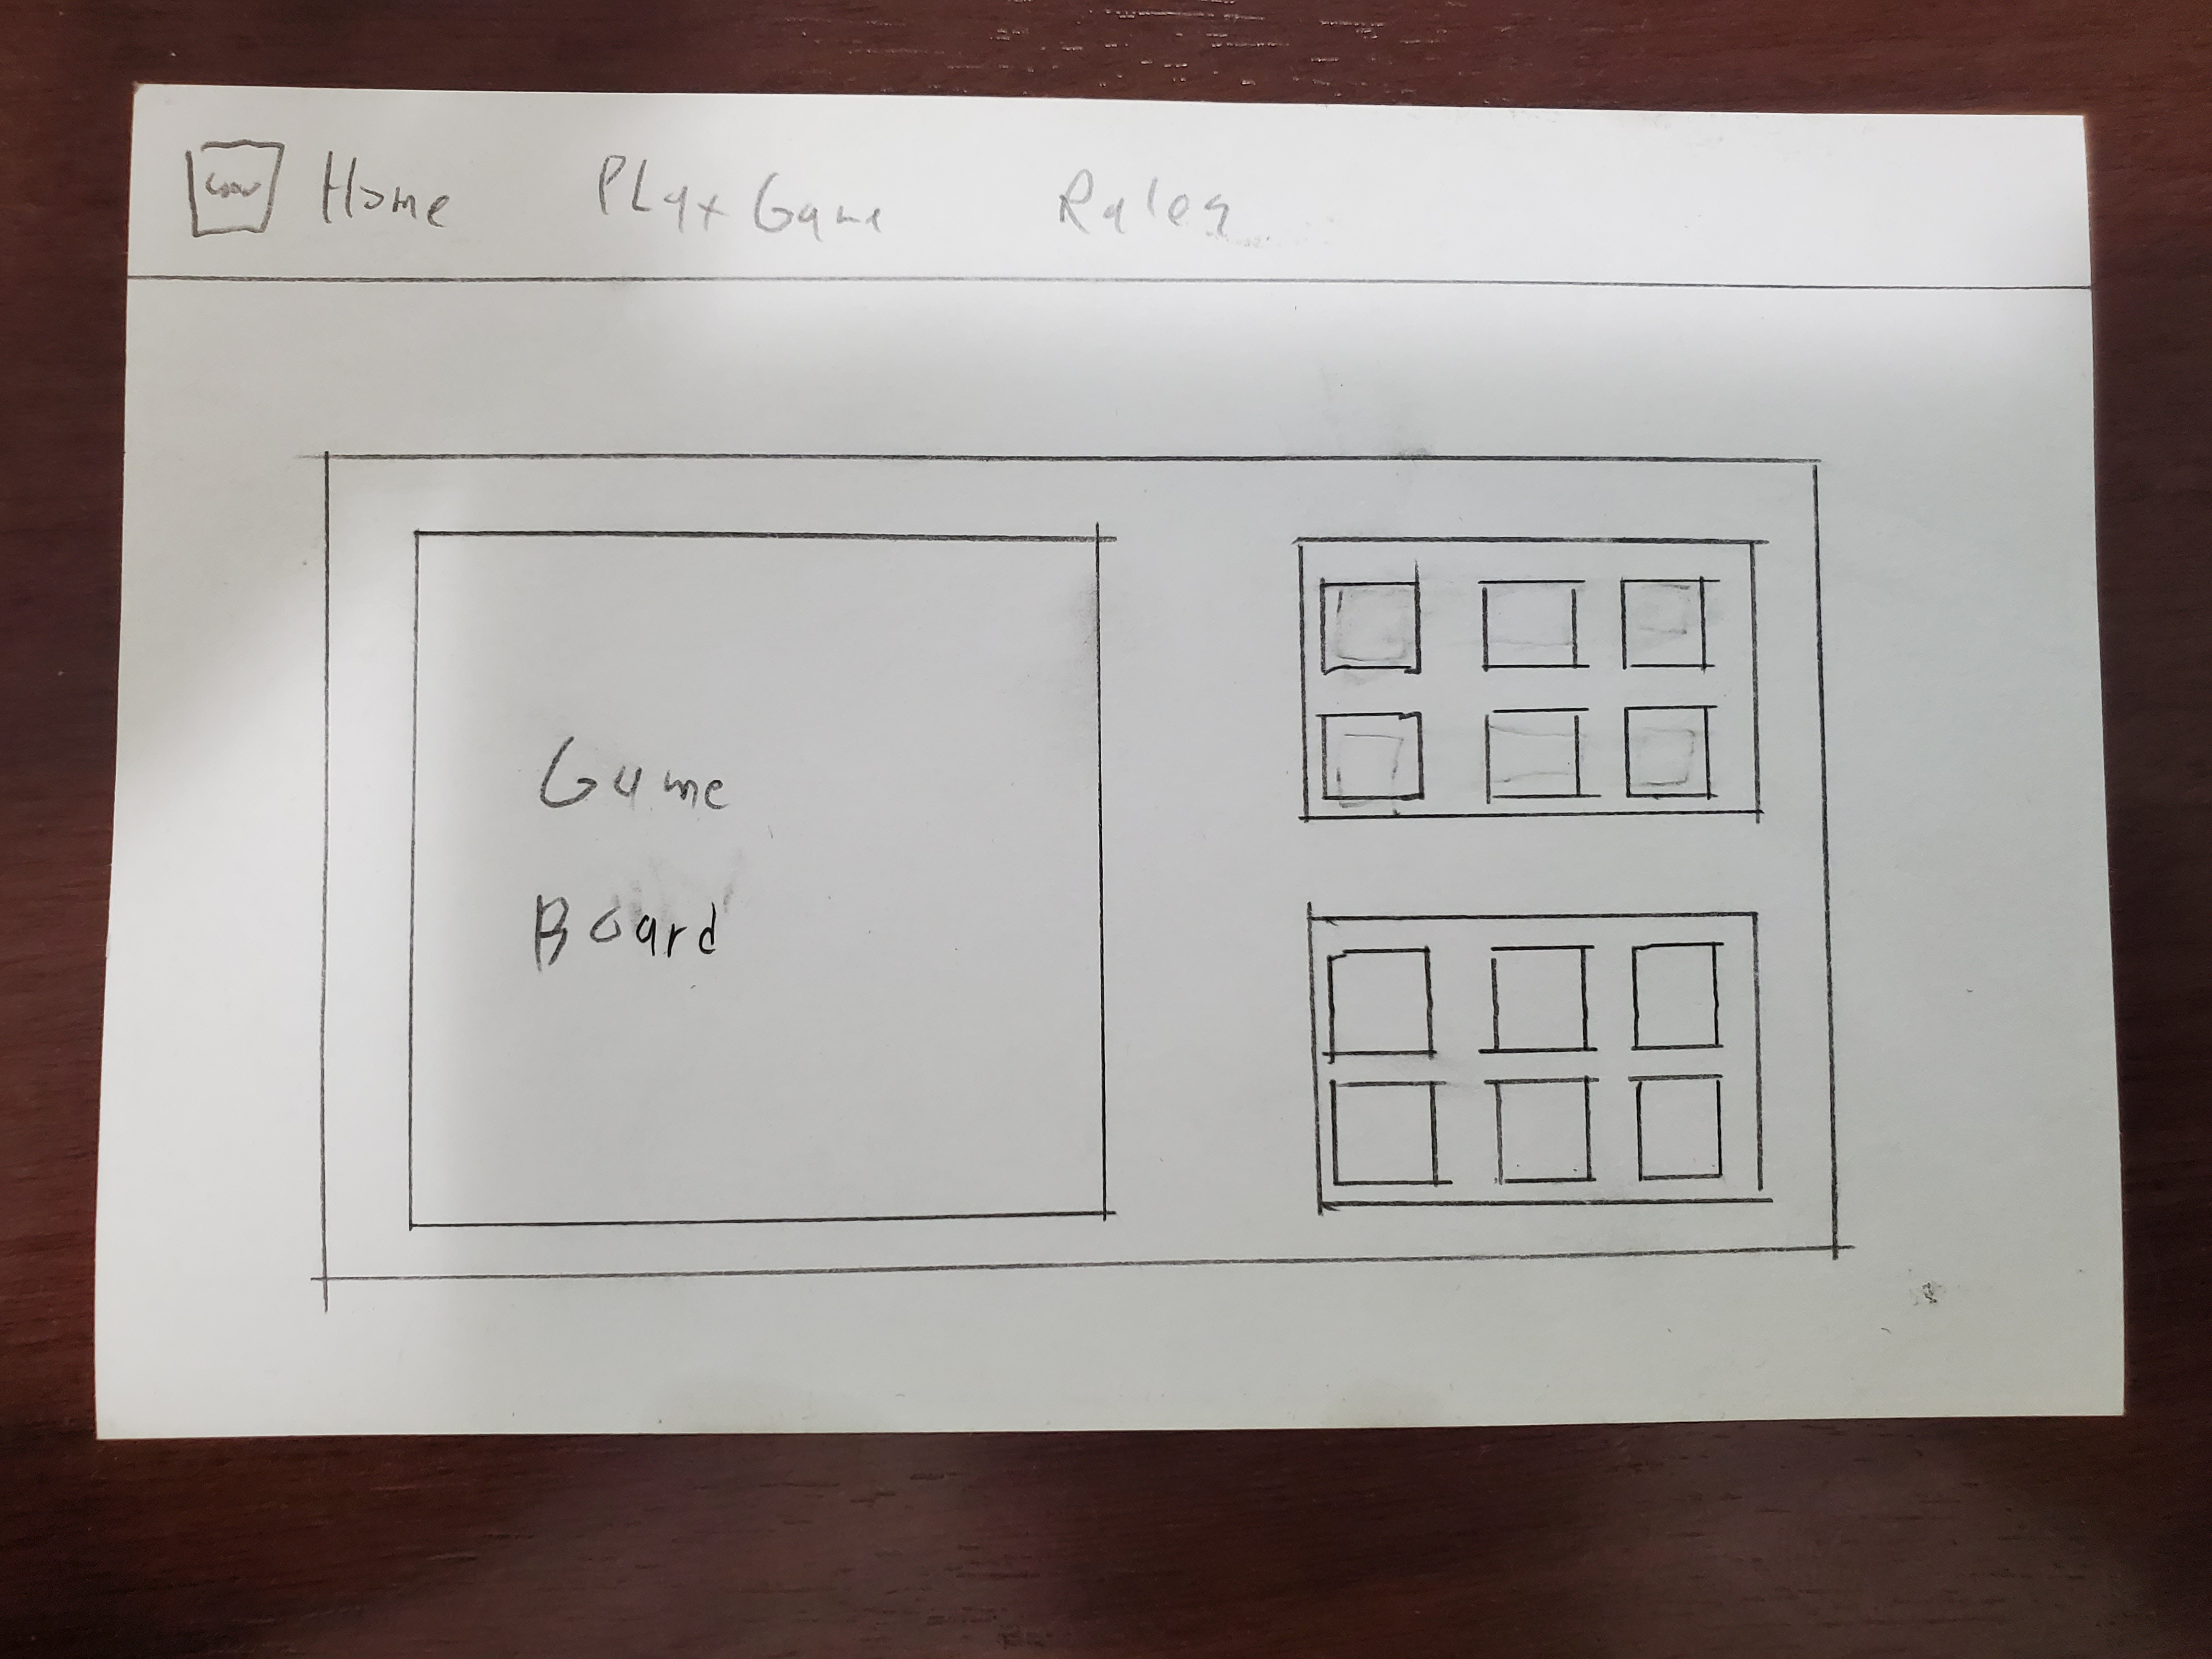 Home Play Game Rules
Game
Board